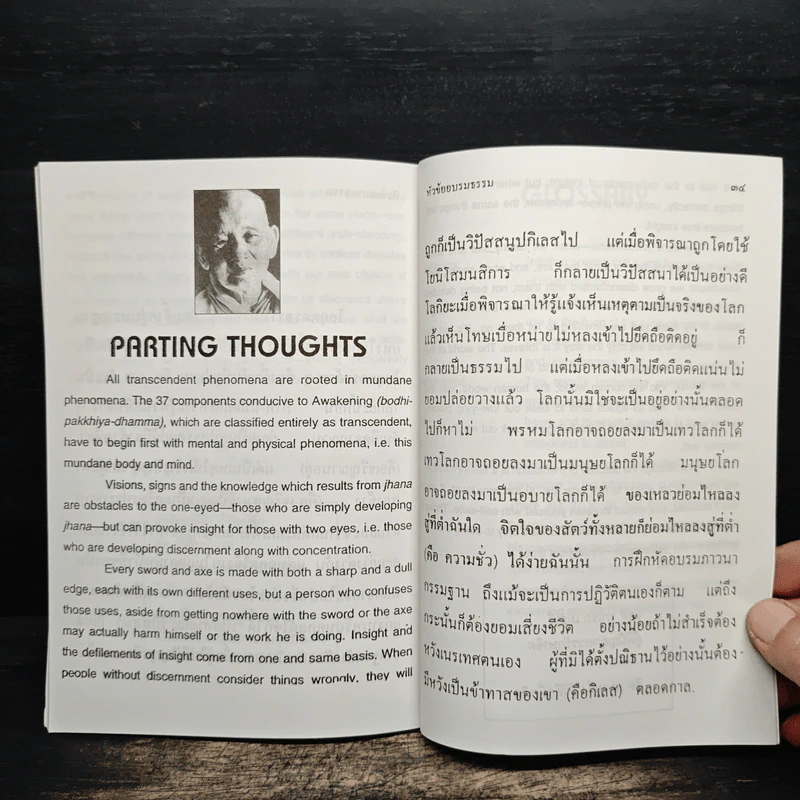 PARTING THOUGHTS
All transcendent phenomena are rooted in mundane
phenomena. The 37 components conducive to Awakening (bodhi-
pakkhiya-dhamma), which are classified entirely as transcendent,
have to begin first with mental and physical phenomena, i.e. this
mundane body and mind.
Visions, signs and the knowledge which results from jhana
are obstacles to the one-eyed—those who are simply developing
jhana—but can provoke insight for those with two eyes, i.e. those
who are developing discernment along with concentration.
Every sword and axe is made with both a sharp and a dull
edge, each with its own different uses, but a person who confuses
those uses, aside from getting nowhere with the sword or the axe
may actually harm himself or the work he is doing. Insight and
the defilements of insight come from one and same basis. When
people without discernment consider things wrongly, they will
หัวข้ออบรมธรรม ๓๔
ถูกก็เป็นวิปัสสนูปกิเลสไป แต่เมื่อพิจารณาถูกโดยใช้
โยนิโสมนสิการ ก็กลายเป็นวิปัสสนาได้เป็นอย่างดี
โลกิยะเมื่อพิจารณาให้รู้แจ้งเห็นเหตุตามเป็นจริงของโลก
แล้วเห็นโทษเบื่อหน่ายไม่หลงเข้าไปยึดถือติดอยู่ ก็
กลายเป็นธรรมไป แต่เมื่อหลงเข้าไปยึดถือติดแน่นไม่
ยอมปล่อยวางแล้ว โลกนั้นมิใช่จะเป็นอยู่อย่างนั้นตลอด
ไปก็หาไม่ พรหมโลกอาจถอยลงมาเป็นเทวโลกก็ได้
เทวโลกอาจถอยลงมาเป็นมนุษยโลกก็ได้ มนุษยโลก
อาจถอยลงมาเป็นอบายโลกก็ได้ ของเหลวย่อมไหลลง
สู่ที่ต่ำฉันใด จิตใจของสัตว์ทั้งหลายก็ย่อมไหลลงสู่ที่ต่ำ
(คือ ความชั่ว) ได้ง่ายฉันนั้น การฝึกหัดอบรมภาวนา
กรรมฐาน ถึงแม้จะเป็นการปฏิวัติตนเองก็ตาม แต่ถึง
กระนั้นก็ต้องยอมเสี่ยงชีวิต อย่างน้อยถ้าไม่สำเร็จต้อง
หวังเนรเทศตนเอง ผู้ที่มิได้ตั้งปณิธานไว้อย่างนั้นต้อง
มีหวังเป็นข้าทาสของเขา (คือกิเลส) ตลอดกาล.